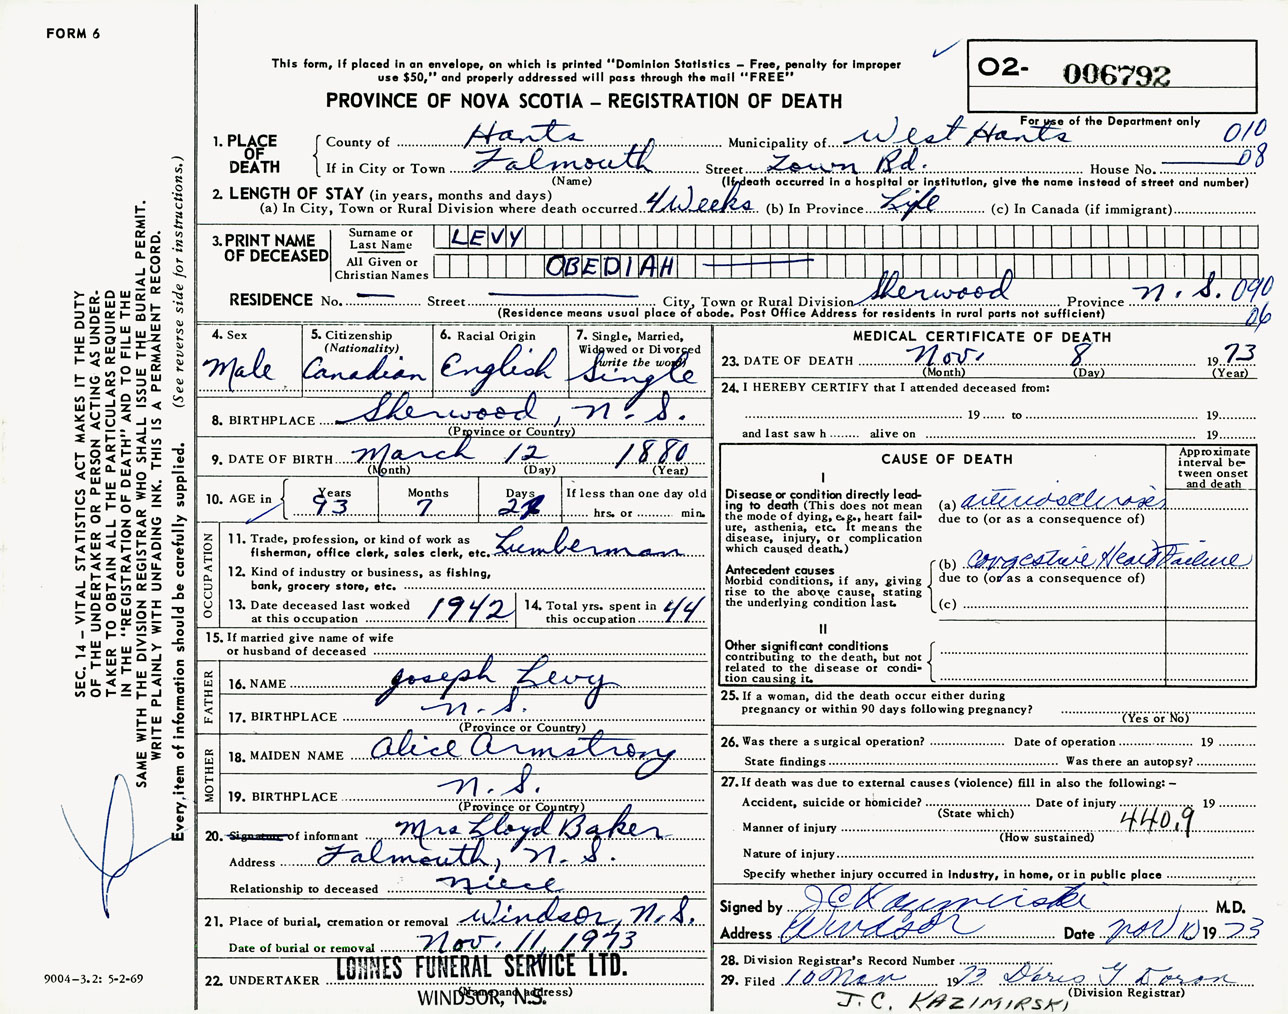 FORM 6
This form, if placed in an envelope, on which is printed "Dominion Statistics – Free, penalty for improper
use $50," and properly addressed will pass through the mail "FREE"
PROVINCE OF NOVA SCOTIA – REGISTRATION OF DEATH
02- 006792
For use of the Department only
010
08
1. PLACE OF DEATH
County of Hants Municipality of West Hants
If in City or Town Falmouth Street Town Rd. House No.
(Name) (If death occurred in a hospital or institution, give the name instead of street and number)
2. LENGTH OF STAY (in years, months and days)
(a) In City, Town or Rural Division where death occurred 4 Weeks (b) In Province Life (c) In Canada (if immigrant)
3. PRINT NAME OF DECEASED
Surname or Last Name LEVY
All Given or Christian Names OBEDIAH
RESIDENCE No. — Street — City, Town or Rural Division Sherwood Province N.S. 090
(Residence means usual place of abode. Post Office Address for residents in rural parts not sufficient) 06
4. Sex Male
5. Citizenship (Nationality) Canadian
6. Racial Origin English
7. Single, Married, Widowed or Divorced (write the word) Single
8. BIRTHPLACE Sherwood, N.S.
(Province or Country)
9. DATE OF BIRTH March 12 1880
(Month) (Day) (Year)
10. AGE in Years 93 Months 7 Days If less than one day old hrs. or min.
OCCUPATION
11. Trade, profession, or kind of work as
fisherman, office clerk, sales clerk, etc. Lumberman
12. Kind of industry or business, as fishing,
bank, grocery store, etc.
13. Date deceased last worked at this occupation 1942
14. Total yrs. spent in this occupation 44
15. If married give name of wife
or husband of deceased
FATHER
16. NAME Joseph Levy
17. BIRTHPLACE N.S.
(Province or Country)
MOTHER
18. MAIDEN NAME Alice Armstrong
19. BIRTHPLACE N.S.
(Province or Country)
20. Signature of informant Mrs Lloyd Baker
Address Falmouth, N.S.
Relationship to deceased Niece
21. Place of burial, cremation or removal Windsor, N.S.
Date of burial or removal Nov. 11, 1973
22. UNDERTAKER LOHNES FUNERAL SERVICE LTD.
(Name and address)
WINDSOR, N.S.
MEDICAL CERTIFICATE OF DEATH
23. DATE OF DEATH Nov. 8 1973
(Month) (Day) (Year)
24. I HEREBY CERTIFY that I attended deceased from:
19 to 19
and last saw h alive on 19
CAUSE OF DEATH
Approximate interval between onset and death
I
Disease or condition directly leading to death (This does not mean the mode of dying, e.g., heart failure, asthenia, etc. It means the disease, injury, or complication which caused death.)
(a) arteriosclerosis
due to (or as a consequence of)
Antecedent causes
Morbid conditions, if any, giving rise to the above cause, stating the underlying condition last.
(b) Congestive Heart Failure
due to (or as a consequence of)
(c)
II
Other significant conditions
contributing to the death, but not related to the disease or condition causing it.
25. If a woman, did the death occur either during
pregnancy or within 90 days following pregnancy?
(Yes or No)
26. Was there a surgical operation? Date of operation 19
State findings Was there an autopsy?
27. If death was due to external causes (violence) fill in also the following: –
Accident, suicide or homicide? Date of injury 19
(State which)
Manner of injury 440.9
(How sustained)
Nature of injury
Specify whether injury occurred in industry, in home, or in public place
Signed by J C Kazimirski M.D.
Address Windsor Date Nov 10 1973
28. Division Registrar's Record Number
29. Filed 10 Nov 1973 Doris Y Doran
(Division Registrar)
J.C. KAZIMIRSKI
SEC. 14 – VITAL STATISTICS ACT MAKES IT THE DUTY
OF THE UNDERTAKER OR PERSON ACTING AS UNDER-
TAKER TO OBTAIN ALL THE PARTICULARS REQUIRED
IN THE "REGISTRATION OF DEATH" AND TO FILE THE
SAME WITH THE DIVISION REGISTRAR WHO SHALL ISSUE THE BURIAL PERMIT.
WRITE PLAINLY WITH UNFADING INK. THIS IS A PERMANENT RECORD.
Every item of information should be carefully supplied. (See reverse side for instructions.)
9004-3.2: 5-2-69